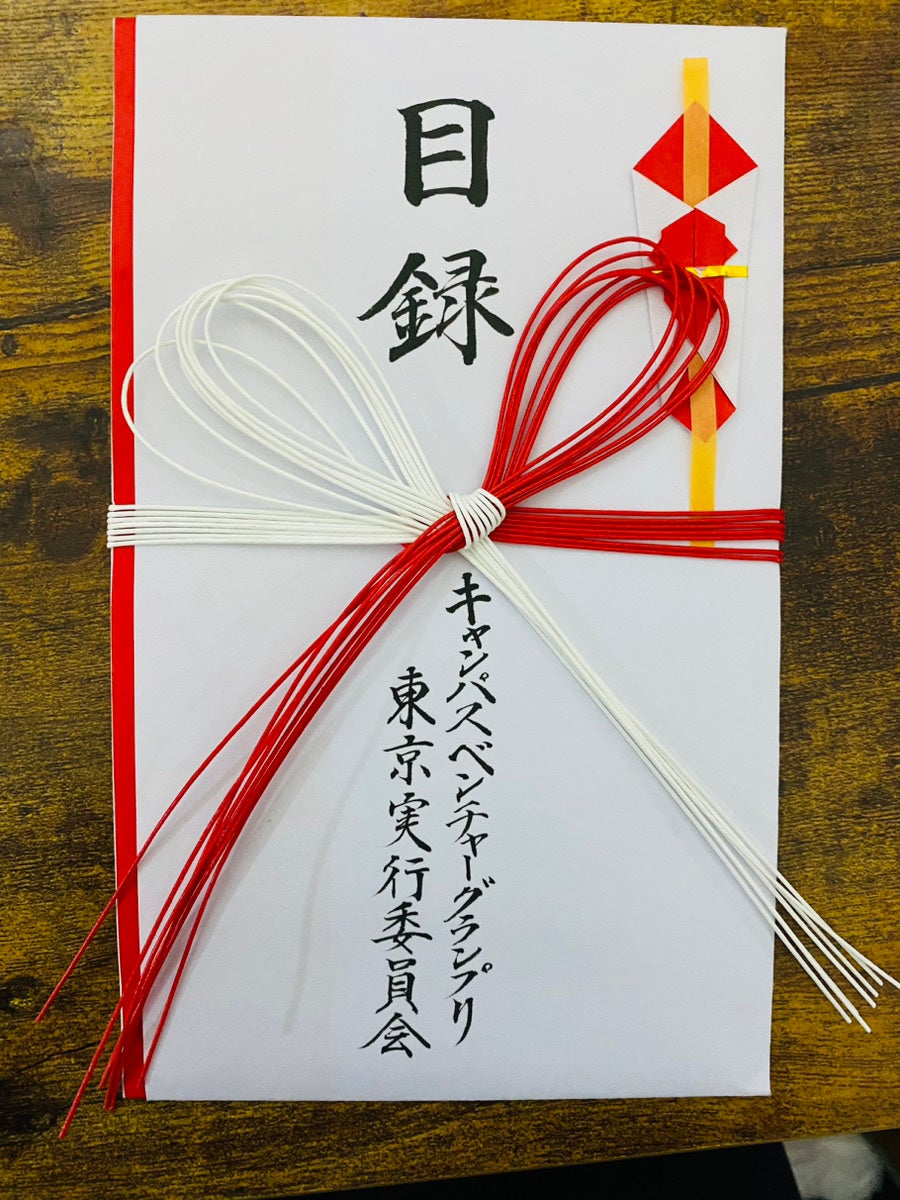 目録
キャンパスベンチャーグランプリ
東京実行委員会